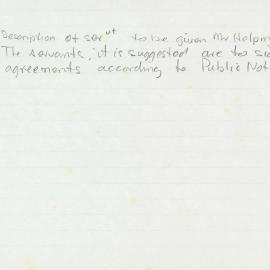 Description of serᵛᵗ to be given Mr Helpm
The servants, it is suggested are to si
agreements according to Public Not